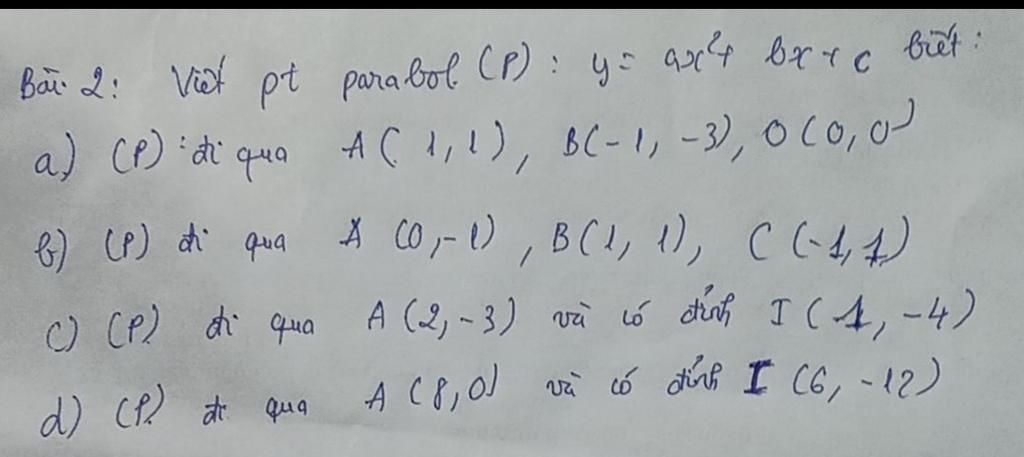 Bài 2: Viết pt parabol (P): y = ax²+ bx + c biết:
a) (P): đi qua A(1,1), B(-1, -3), O(0,0)
b) (P) đi qua A (0,-1), B(1, 1), C(-1,1)
c) (P) đi qua A(2,-3) và có đỉnh I(1, -4)
d) (P) đi qua A(8,0) và có đỉnh I (6, -12)